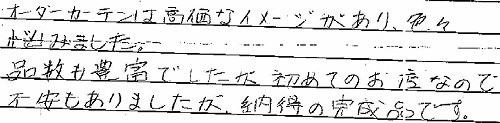 オーダーカーテンは高価なイメージがあり、色々
悩みました。
品数も豊富でしたが初めてのお店なので
不安もありましたが、納得の完成品です。